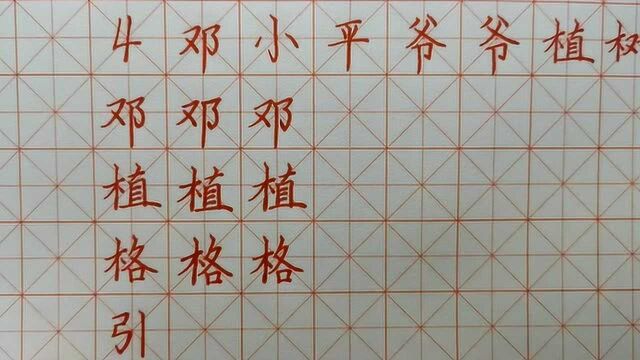 4 邓小平爷爷植树
邓邓邓
植植植
格格格
引